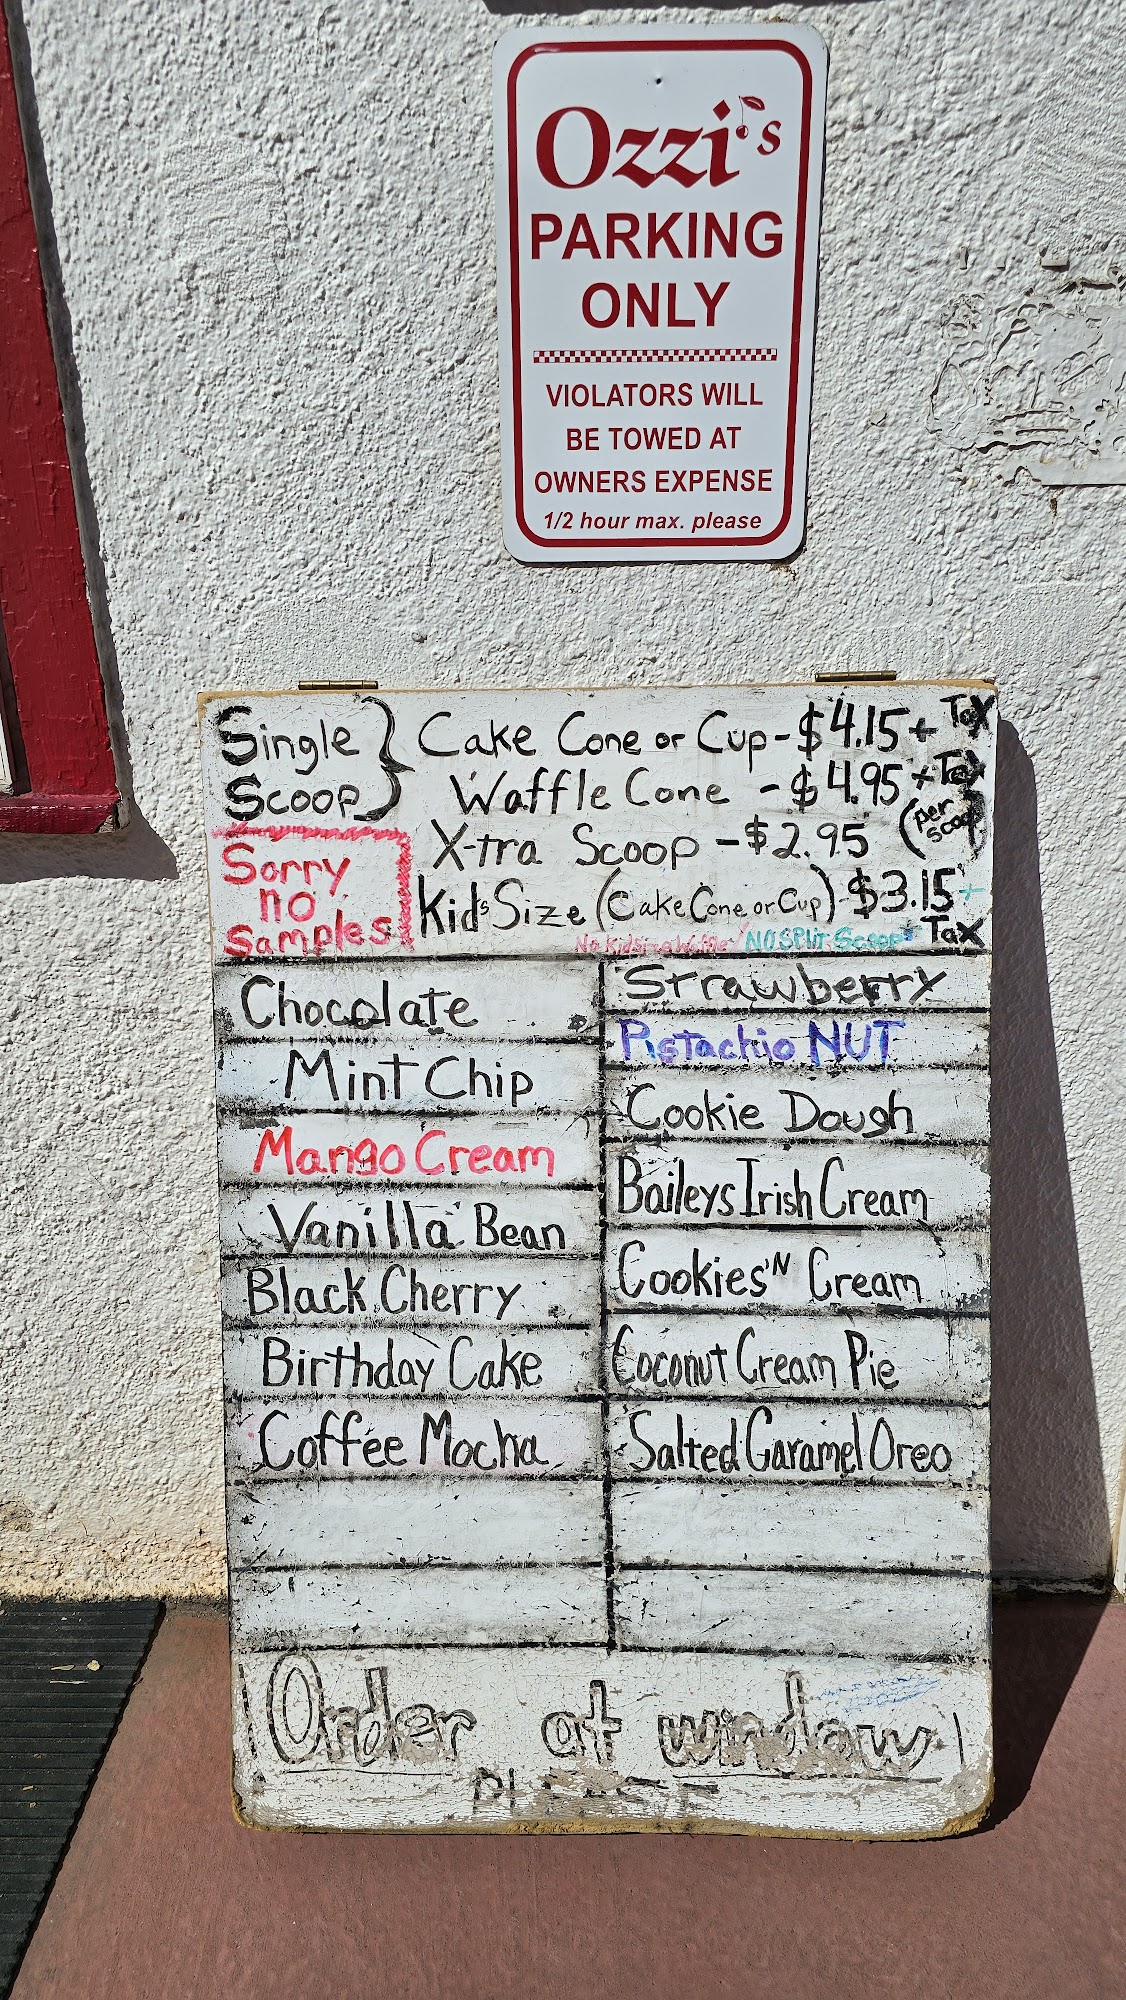 Ozzi's
PARKING
ONLY
VIOLATORS WILL
BE TOWED AT
OWNERS EXPENSE
1/2 hour max. please
Single Scoop } Cake Cone or Cup - $4.15 + Tax
Waffle Cone - $4.95 + Tax
X-tra Scoop - $2.95 (per scoop)
Kid's Size (Cake Cone or Cup) $3.15 + Tax
No Kid Size Waffle / NO SPLIT Scoops
Sorry
no
Samples
Chocolate
Mint Chip
Mango Cream
Vanilla Bean
Black Cherry
Birthday Cake
Coffee Mocha
Strawberry
Pistachio NUT
Cookie Dough
Baileys Irish Cream
Cookies 'N Cream
Coconut Cream Pie
Salted Caramel Oreo
Order at window
PLEASE